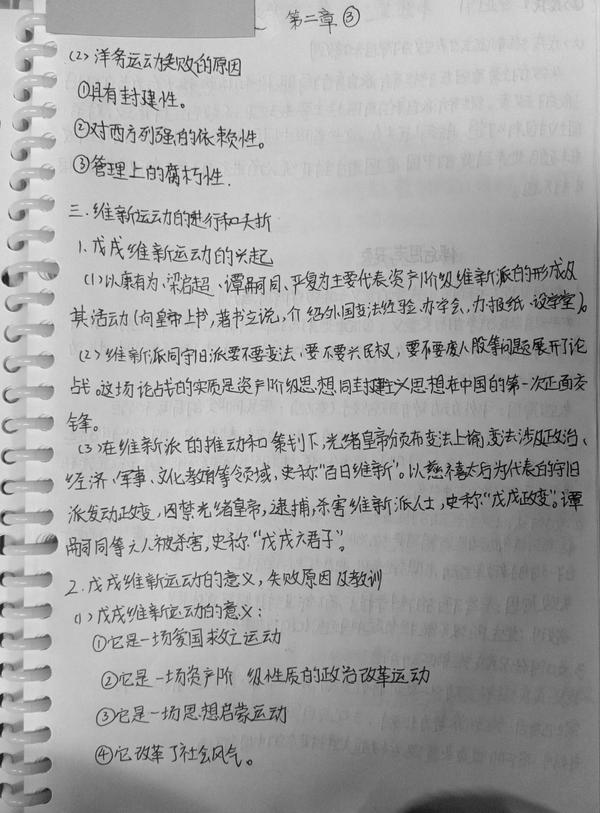 第二章③
(2) 洋务运动失败的原因
①具有封建性。
②对西方列强的依赖性。
③管理上的腐朽性.
三.维新运动的进行和夭折
1.戊戌维新运动的兴起
(1)以康有为、梁启超、谭嗣同、严复为主要代表资产阶级维新派的形成及
其活动(向皇帝上书,著书立说,介绍外国变法经验.办学会,办报纸.设学堂)。
(2)维新派同守旧派要不要变法,要不要兴民权,要不要废八股等问题展开了论
战。这场论战的实质是资产阶级思想同封建主义思想在中国的第一次正面交
锋。
(3)在维新派的推动和策划下,光绪皇帝颁布变法上谕,变法涉及政治、
经济、军事、文化教育等领域,史称"百日维新"。以慈禧太后为代表的守旧
派发动政变,囚禁光绪皇帝,逮捕,杀害维新派人士,史称"戊戌政变"。谭
嗣同等六人被杀害,史称"戊戌六君子"。
2.戊戌维新运动的意义,失败原因及教训
(1)戊戌维新运动的意义:
①它是一场爱国救亡运动
②它是一场资产阶 级性质的政治改革运动
③它是一场思想启蒙运动
④它改革了社会风气。